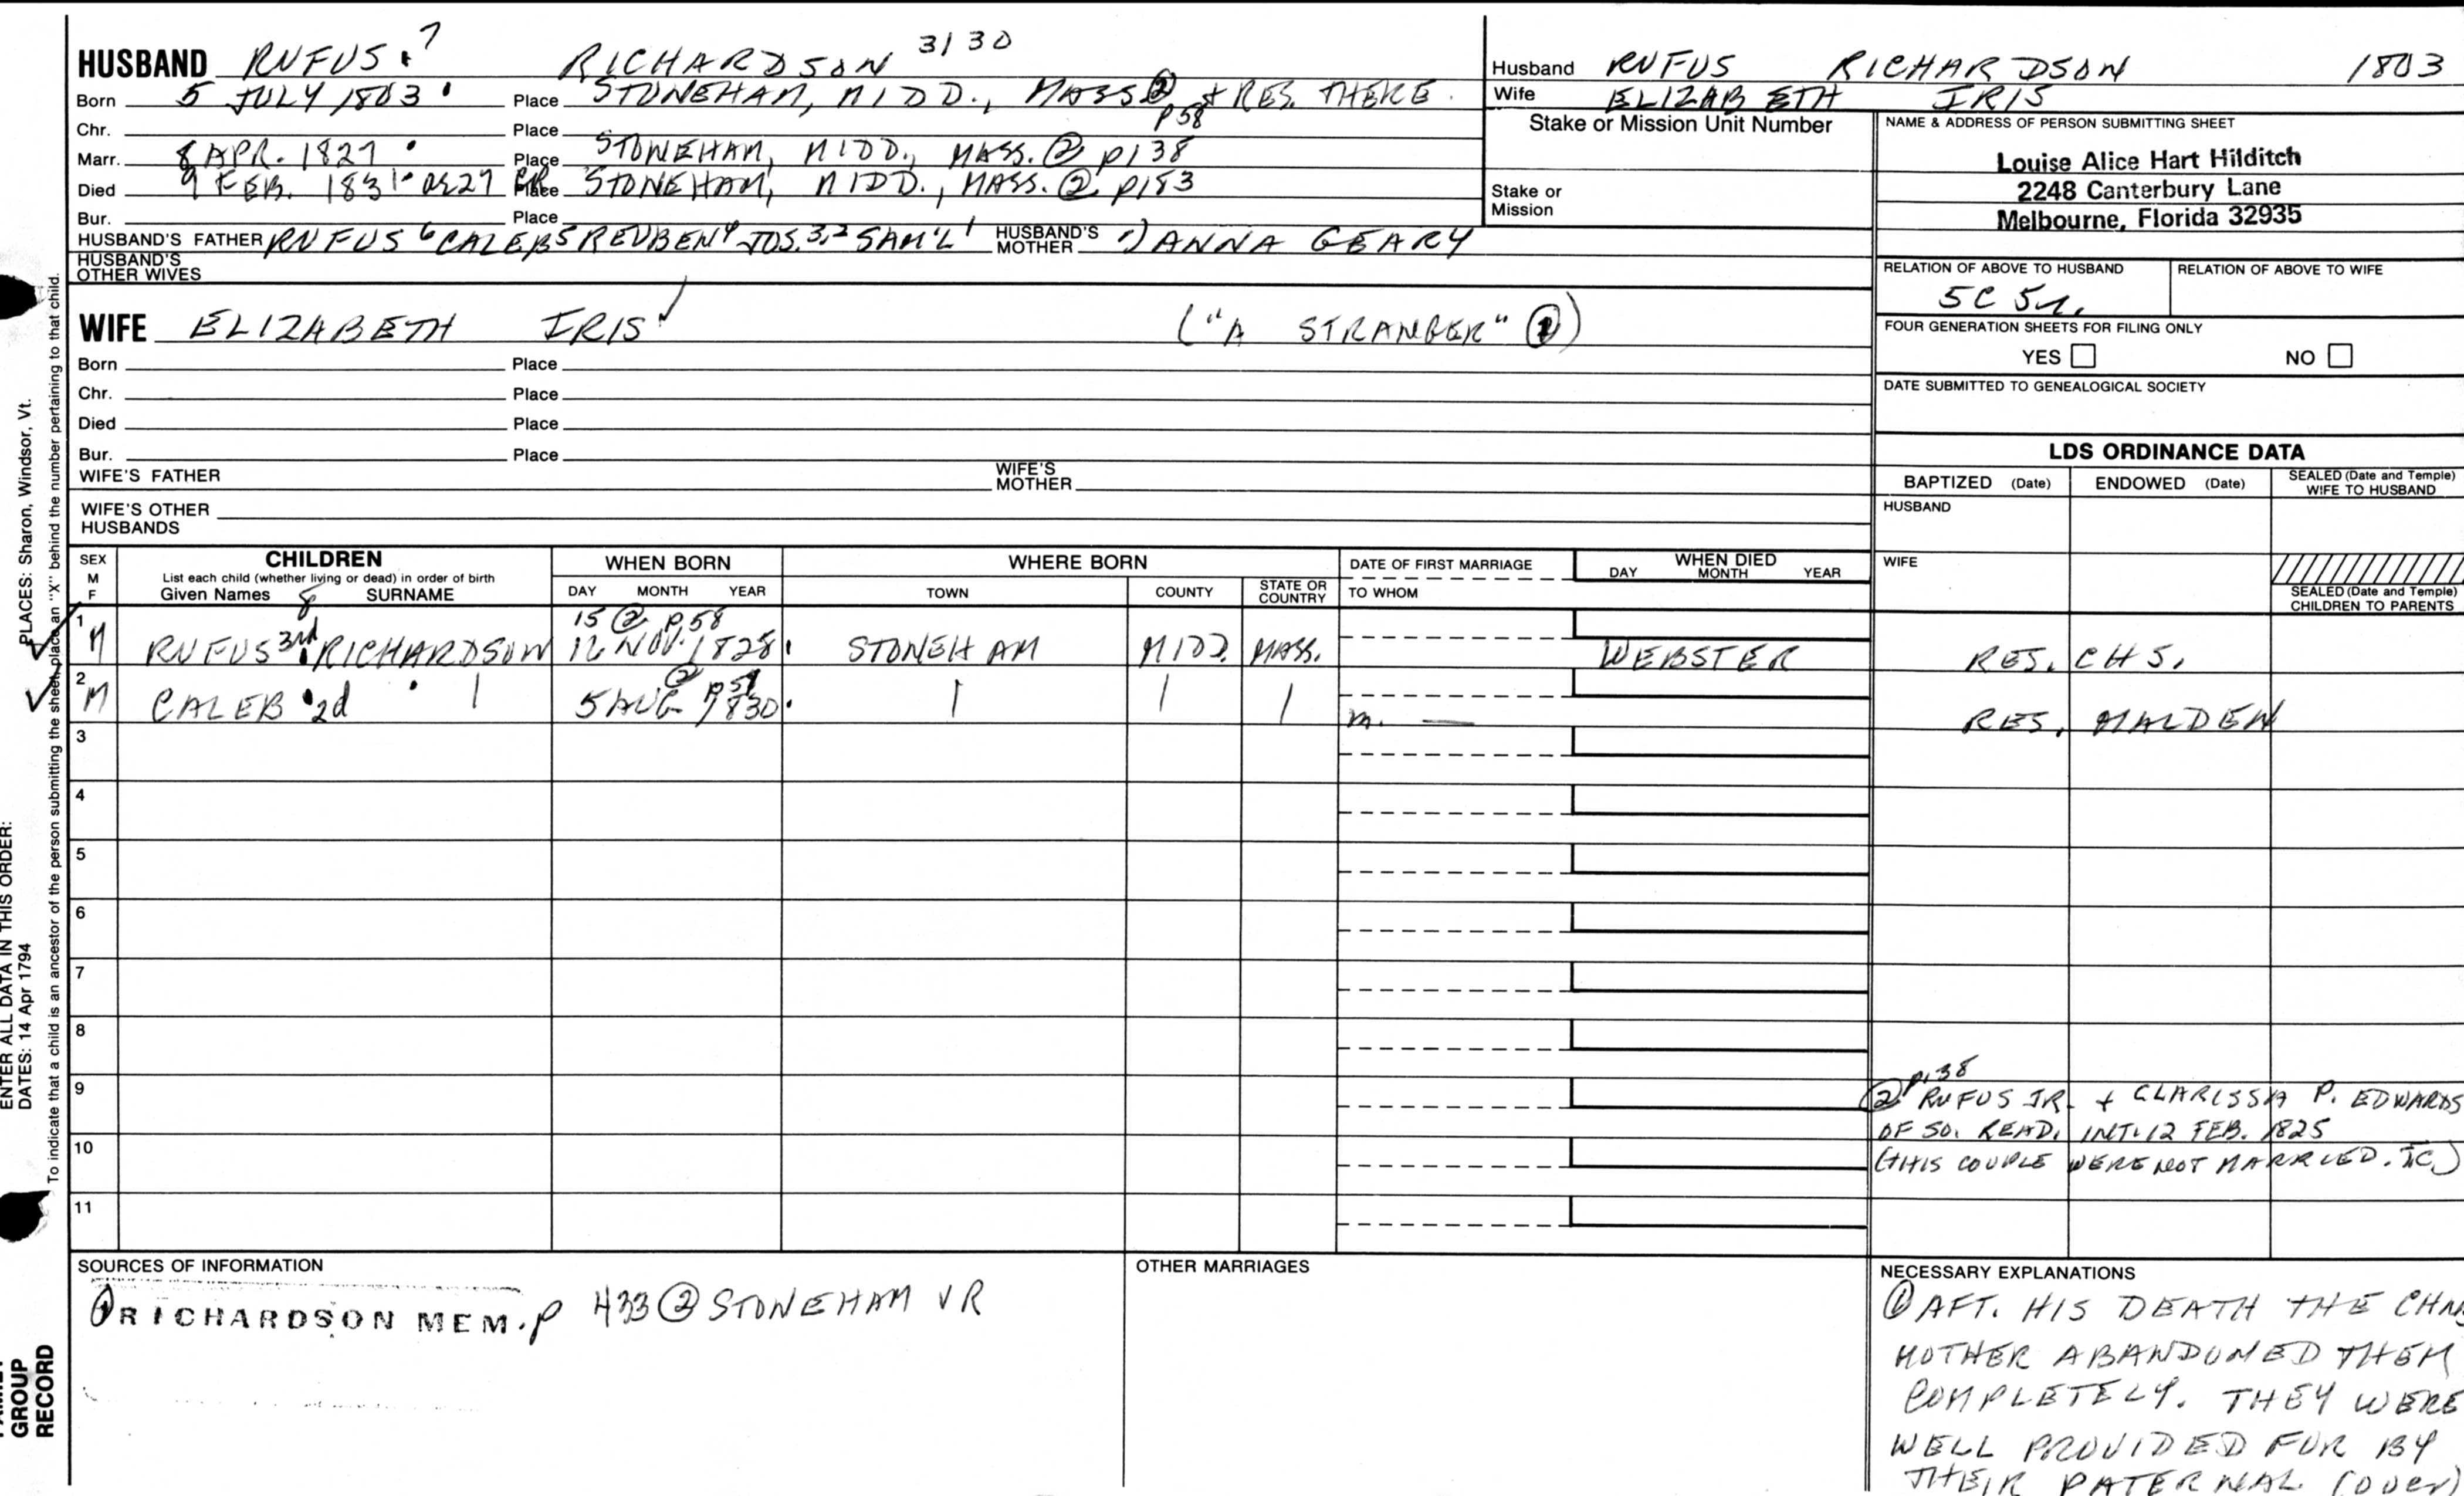 HUSBAND RUFUS 7 RICHARDSON 3130
Born 5 JULY 1803 Place STONEHAM, MIDD., MASS. ② + RES. THERE.
p 58
Chr. Place
Marr. 8 APR. 1827 Place STONEHAM, MIDD., MASS. ② p138
Died 9 FEB. 1831 ae 27 GR Place STONEHAM, MIDD., MASS. ② p183
Bur. Place
HUSBAND'S FATHER RUFUS 6 CALEB 5 REUBEN 4 JOS. 3,2 SAM'L 1 HUSBAND'S MOTHER 1) ANNA GEARY
HUSBAND'S OTHER WIVES
WIFE ELIZABETH IRIS ("A STRANGER" ①)
Born Place
Chr. Place
Died Place
Bur. Place
WIFE'S FATHER WIFE'S MOTHER
WIFE'S OTHER HUSBANDS
Husband RUFUS RICHARDSON 1803
Wife ELIZABETH IRIS
Stake or Mission Unit Number
Stake or Mission
NAME & ADDRESS OF PERSON SUBMITTING SHEET
Louise Alice Hart Hilditch
2248 Canterbury Lane
Melbourne, Florida 32935
RELATION OF ABOVE TO HUSBAND RELATION OF ABOVE TO WIFE
5C 5r.
FOUR GENERATION SHEETS FOR FILING ONLY
YES NO
DATE SUBMITTED TO GENEALOGICAL SOCIETY
LDS ORDINANCE DATA
BAPTIZED (Date) ENDOWED (Date) SEALED (Date and Temple) WIFE TO HUSBAND
HUSBAND
WIFE
SEALED (Date and Temple) CHILDREN TO PARENTS
SEX M F
CHILDREN
List each child (whether living or dead) in order of birth
Given Names SURNAME
WHEN BORN
DAY MONTH YEAR
WHERE BORN
TOWN COUNTY STATE OR COUNTRY
DATE OF FIRST MARRIAGE
TO WHOM
WHEN DIED
DAY MONTH YEAR
8 15 ② p 58
1 M RUFUS 3rd RICHARDSON 12 NOV. 1828 STONEHAM MIDD. MASS. WEBSTER RES. CHS.
② p 57
2 M CALEB 2d 5 AUG 1830 m. — RES. MALDEN
3
4
5
6
7
8
9
10
11
p138
② RUFUS JR. + CLARISSA P. EDWARDS
OF SO. READ. INT. 12 FEB. 1825
(THIS COUPLE WERE NOT MARRIED. TC)
SOURCES OF INFORMATION
① RICHARDSON MEM. p 433 ② STONEHAM VR
OTHER MARRIAGES
NECESSARY EXPLANATIONS
① AFT. HIS DEATH THE CHN
MOTHER ABANDONED THEM
COMPLETELY. THEY WERE
WELL PROVIDED FOR BY
THEIR PATERNAL (over)
PLACES: Sharon, Windsor, Vt.
ENTER ALL DATA IN THIS ORDER:
DATES: 14 Apr 1794
To indicate that a child is an ancestor of the person submitting the sheet, place an "X" behind the number pertaining to that child.
GROUP
RECORD